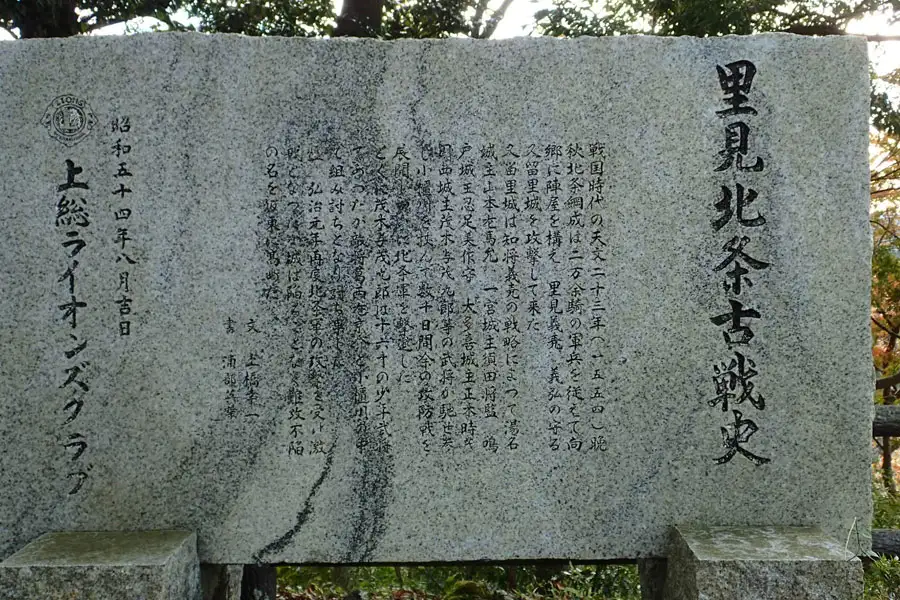 里見北条古戦史
戦国時代の天文二十三年(一五五四)晩
秋北条綱成は二万余騎の軍兵を従えて向
郷に陣屋を構え 里見義堯、義弘の守る
久留里城を攻撃して来た
久留里城は知将義堯の戦略によって湯名
城主山本左馬允 一宮城主須田将監 鳴
戸城主忍足美作守 大多喜城主正木時茂
西城主茂木与茂九郎等の武将が馳せ参
じ小櫃川を挟んで数十日間余の攻防戦を
展開し 北条軍を撃退した
とくに茂木与茂九郎は十六才の少年武将
であったが敵将葛西 と小櫃川の中
で組み討ちとなり
弘治元年再度北条軍の攻撃を受け激
戦となったが城は陥ることなく難攻不陥
の名を坂東に
文 上橋幸一
書
昭和五十四年八月吉日
LIONS
上総ライオンズクラブ